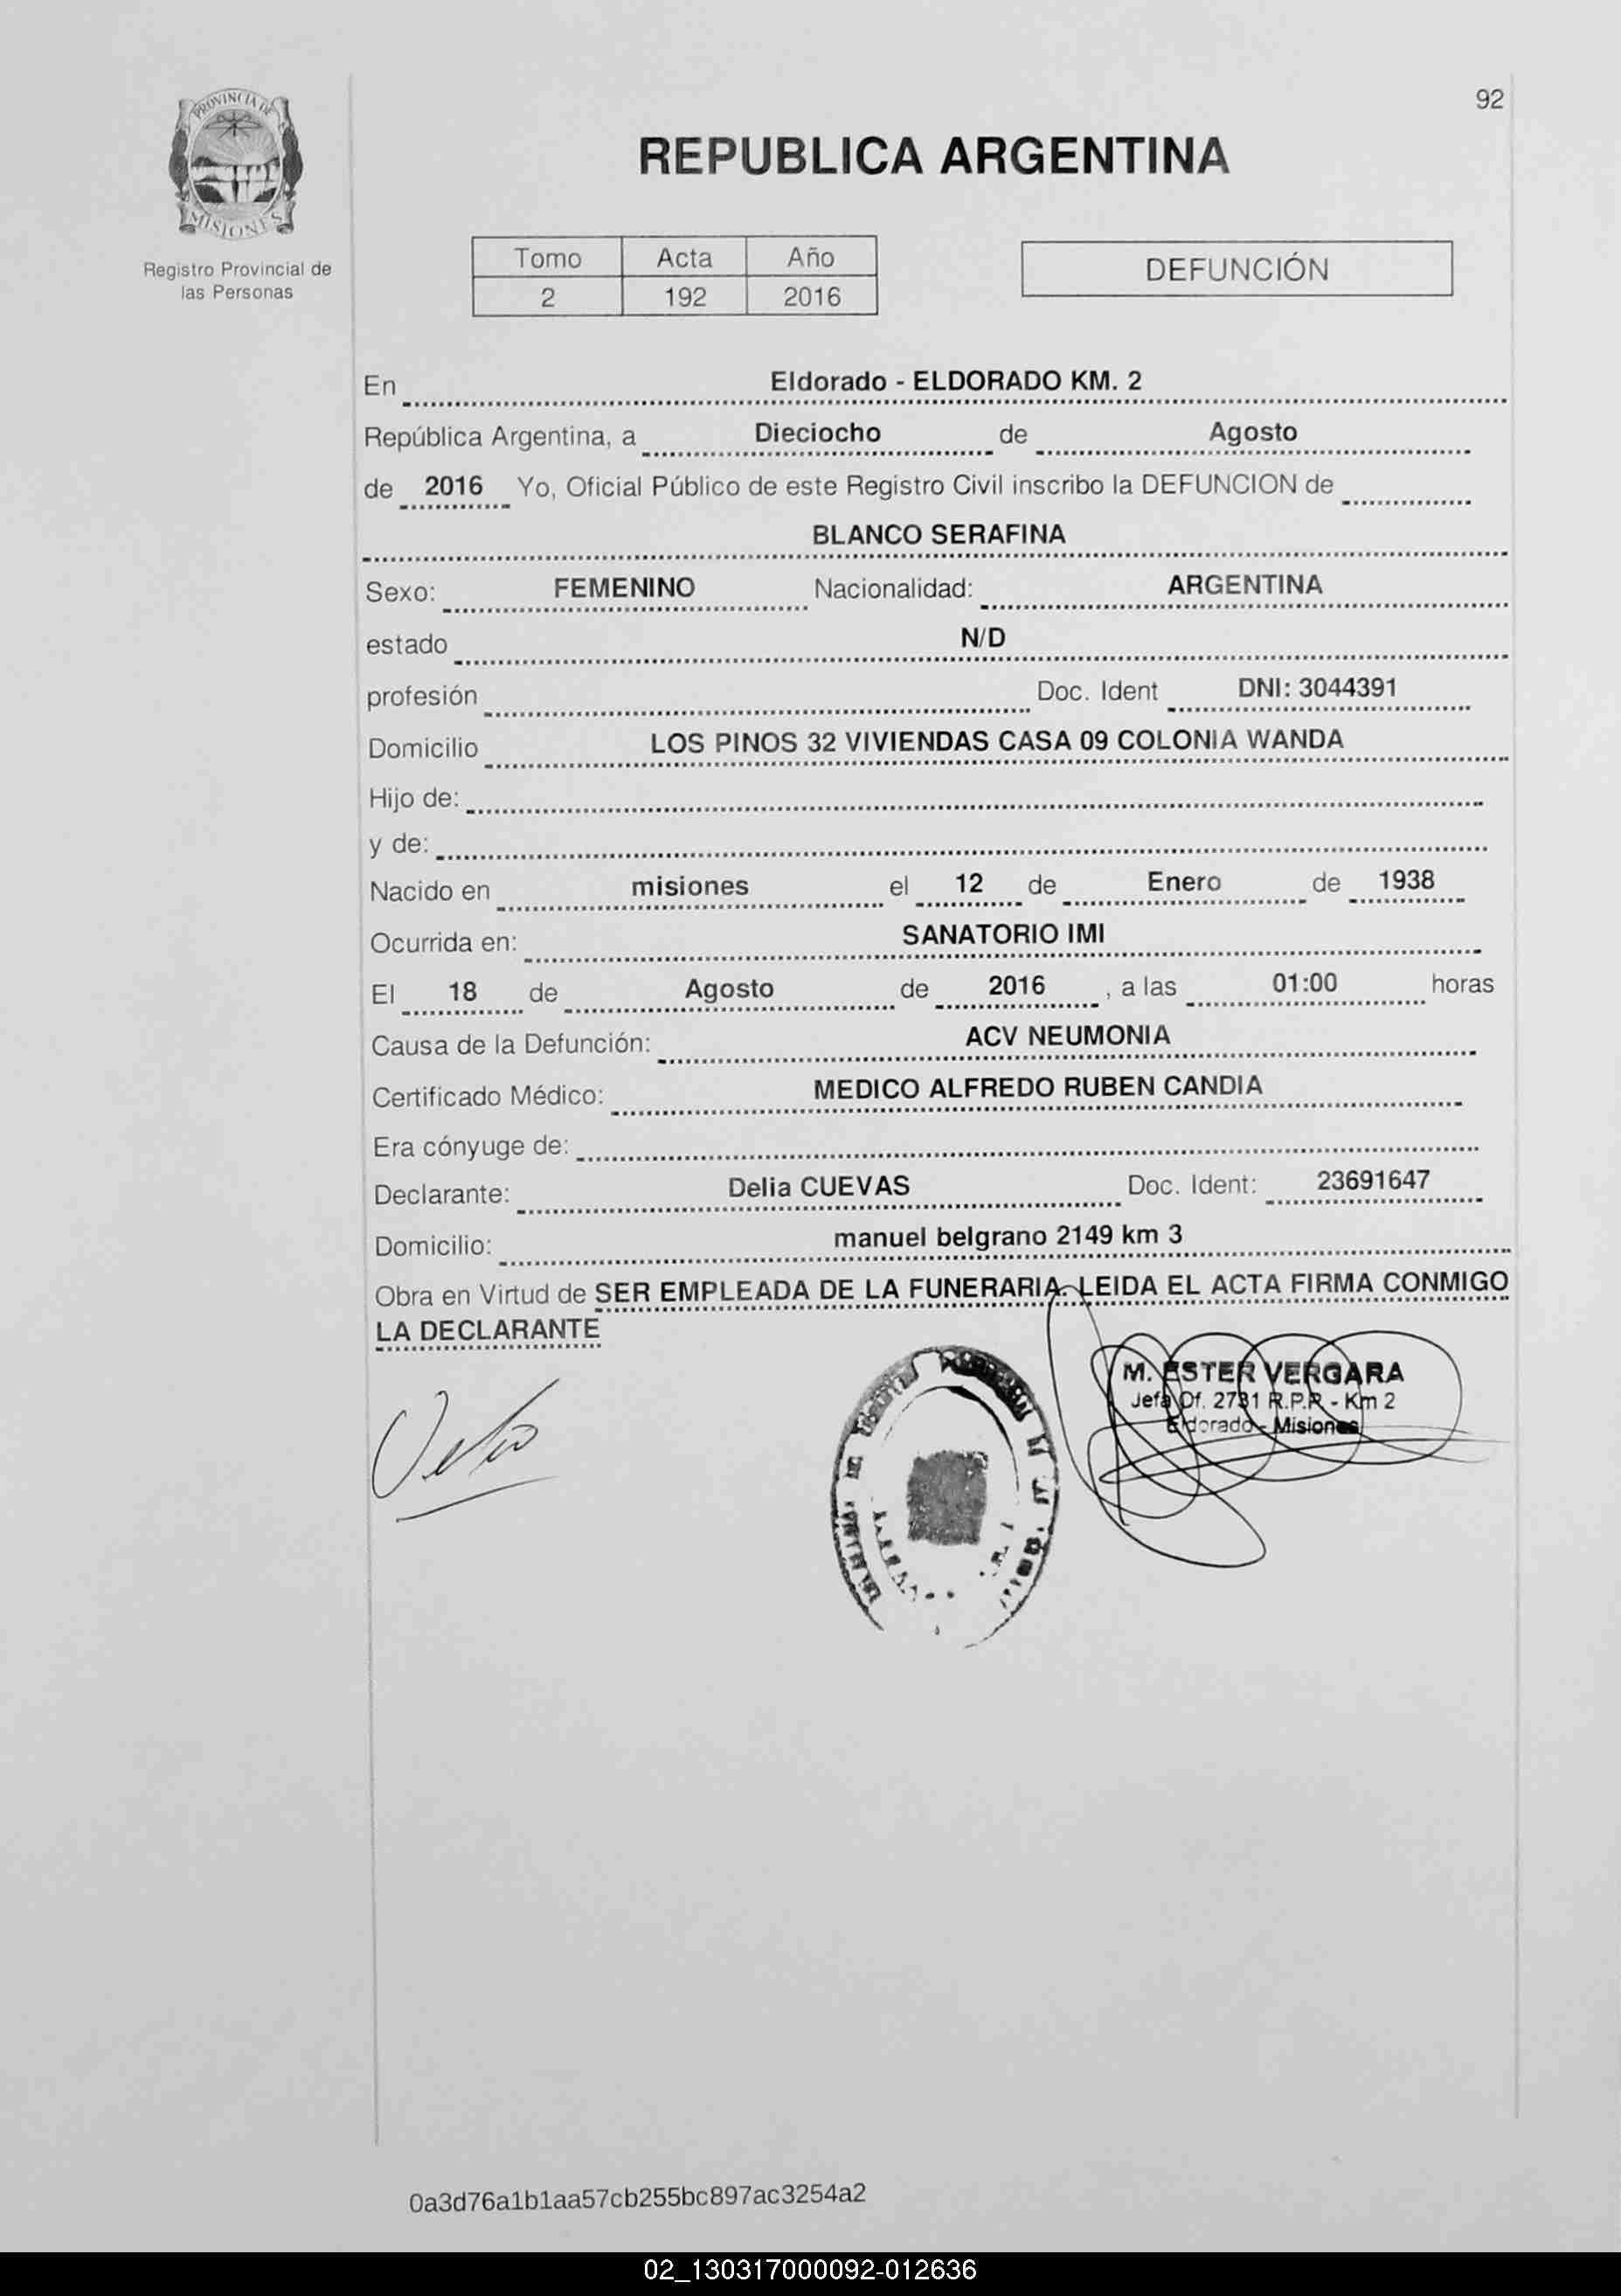 92
PROVINCIA DE
MISIONES
Registro Provincial de
las Personas
REPUBLICA ARGENTINA
Tomo Acta Año
2 192 2016
DEFUNCIÓN
En Eldorado - ELDORADO KM. 2
República Argentina, a Dieciocho de Agosto
de 2016 Yo, Oficial Público de este Registro Civil inscribo la DEFUNCION de
BLANCO SERAFINA
Sexo: FEMENINO Nacionalidad: ARGENTINA
estado N/D
profesión Doc. Ident DNI: 3044391
Domicilio LOS PINOS 32 VIVIENDAS CASA 09 COLONIA WANDA
Hijo de:
y de:
Nacido en misiones el 12 de Enero de 1938
Ocurrida en: SANATORIO IMI
El 18 de Agosto de 2016 , a las 01:00 horas
Causa de la Defunción: ACV NEUMONIA
Certificado Médico: MEDICO ALFREDO RUBEN CANDIA
Era cónyuge de:
Declarante: Delia CUEVAS Doc. Ident: 23691647
Domicilio: manuel belgrano 2149 km 3
Obra en Virtud de SER EMPLEADA DE LA FUNERARIA- LEIDA EL ACTA FIRMA CONMIGO
LA DECLARANTE
M. ESTER VERGARA
Jefa Of. 2731 R.P.P. - Km 2
Eldorado - Misiones
0a3d76a1b1aa57cb255bc897ac3254a2
02_130317000092-012636